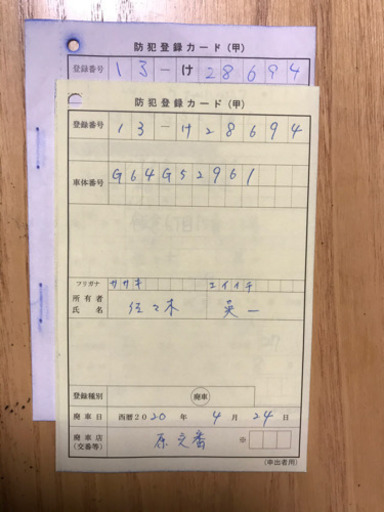 防犯登録カード（甲）
登録番号 13-け28694
防犯登録カード（甲）
登録番号 13-け28694
車体番号 G64G52961
フリガナ ササキ エイイチ
所有者氏名 佐々木 英一
登録種別 廃車
廃車日 西暦2020年4月24日
廃車店（交番等） 交番 ※
（申出者用）